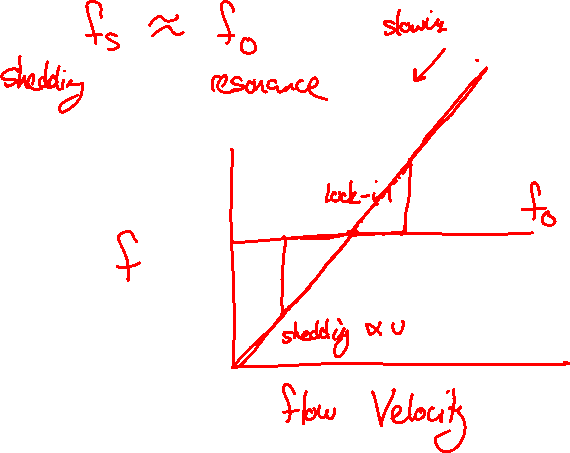 fs ≈ fo
shedding
resonance
lock-in
fo
f
shedding ∝ U
flow Velocity